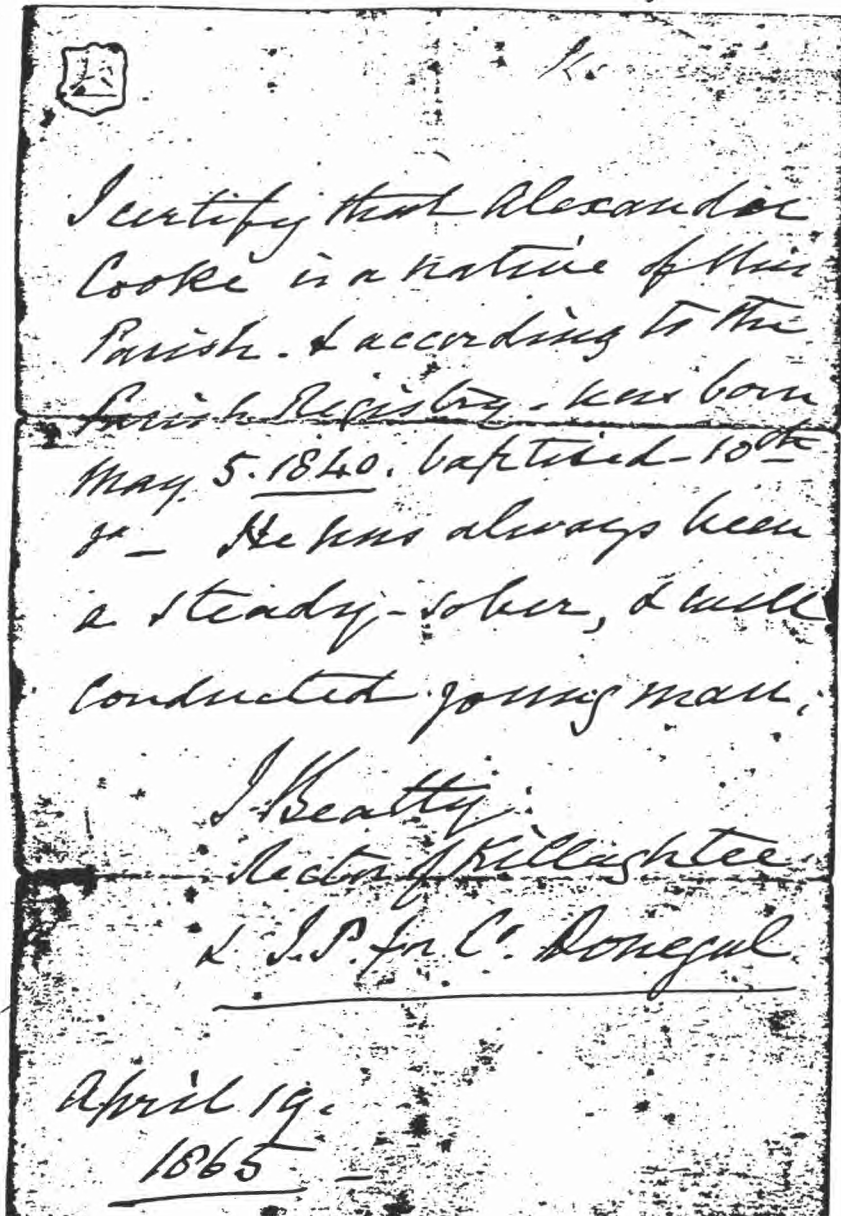 K.
I certify that Alexander
Cooke is a native of this
Parish. & according to the
Parish Registry. was born
May 5. 1840. baptised - 10th
He has always been
a steady - sober, & well
conducted young man.
J. Beatty.
Rector of Killaghtee
& J.P. for Co. Donegal.
April 19.
1865 -